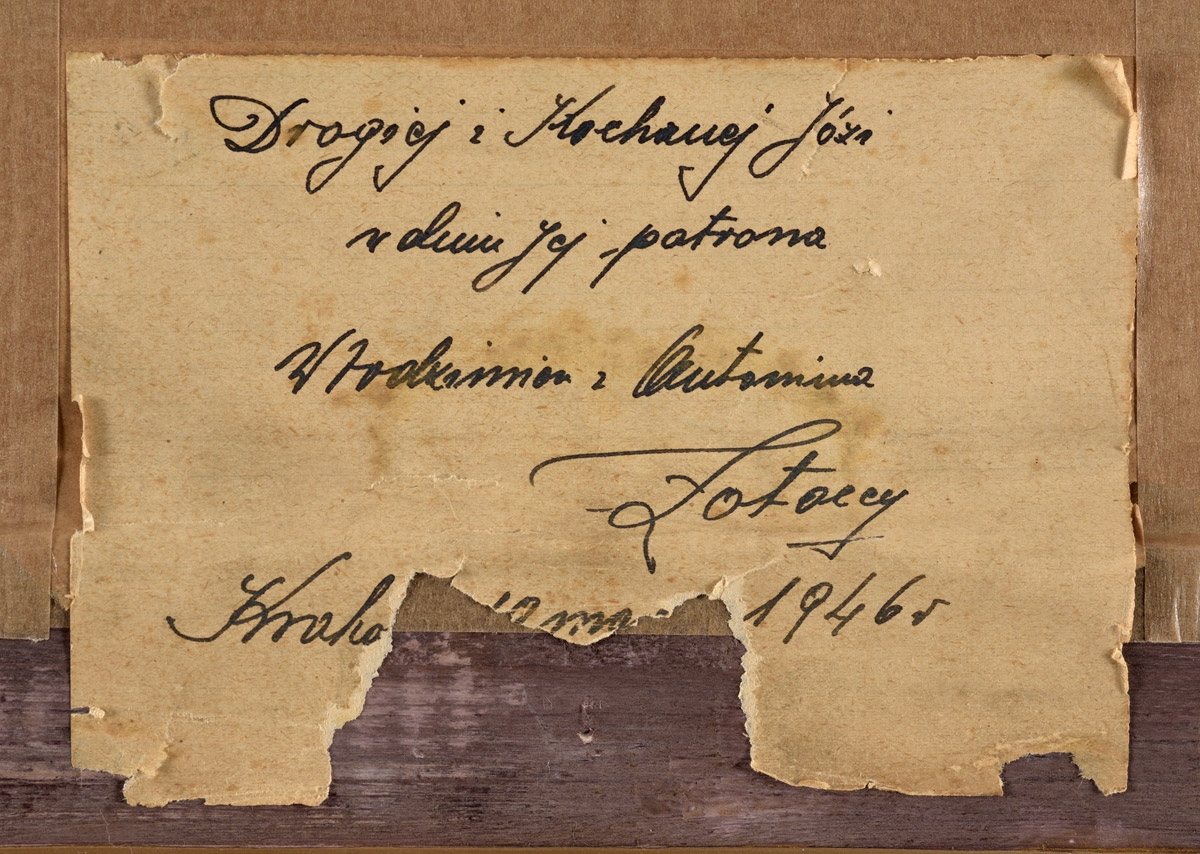 Drogiej i Kochanej Józi
w dniu Jej patrona
Włodzimierz i Antonina
Krako 1946 r